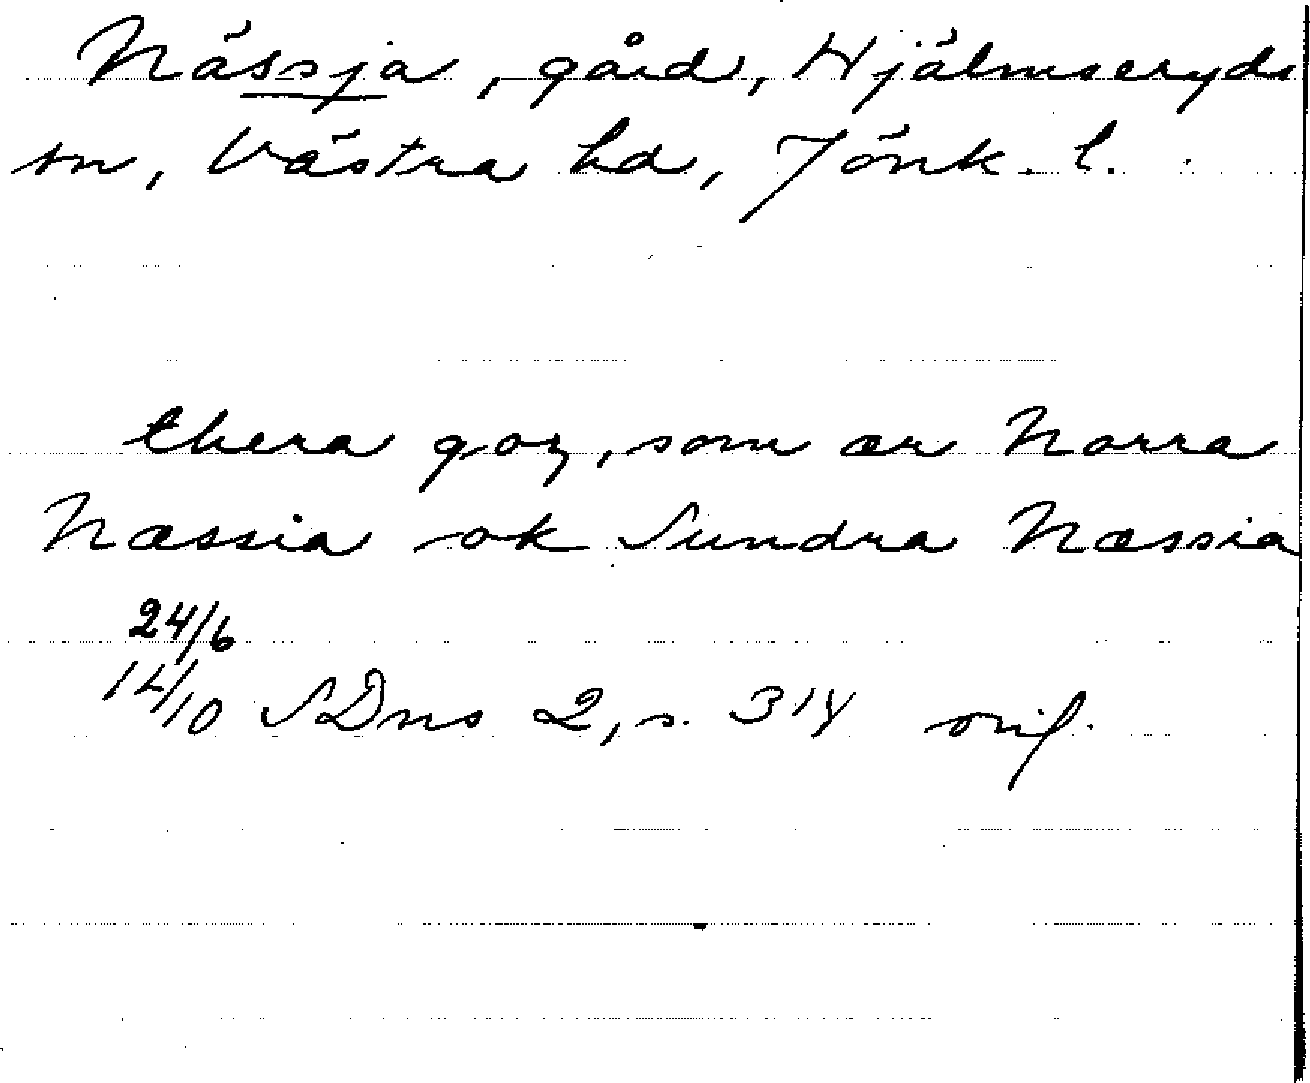 Nässja, gård, Hjälmseryds
sn, Västra hd, Jönk. l.
thera goz, som ær Norra
Næssia ok Sundra Næssia
24/6
14/10 SDns 2, s. 318 orig.